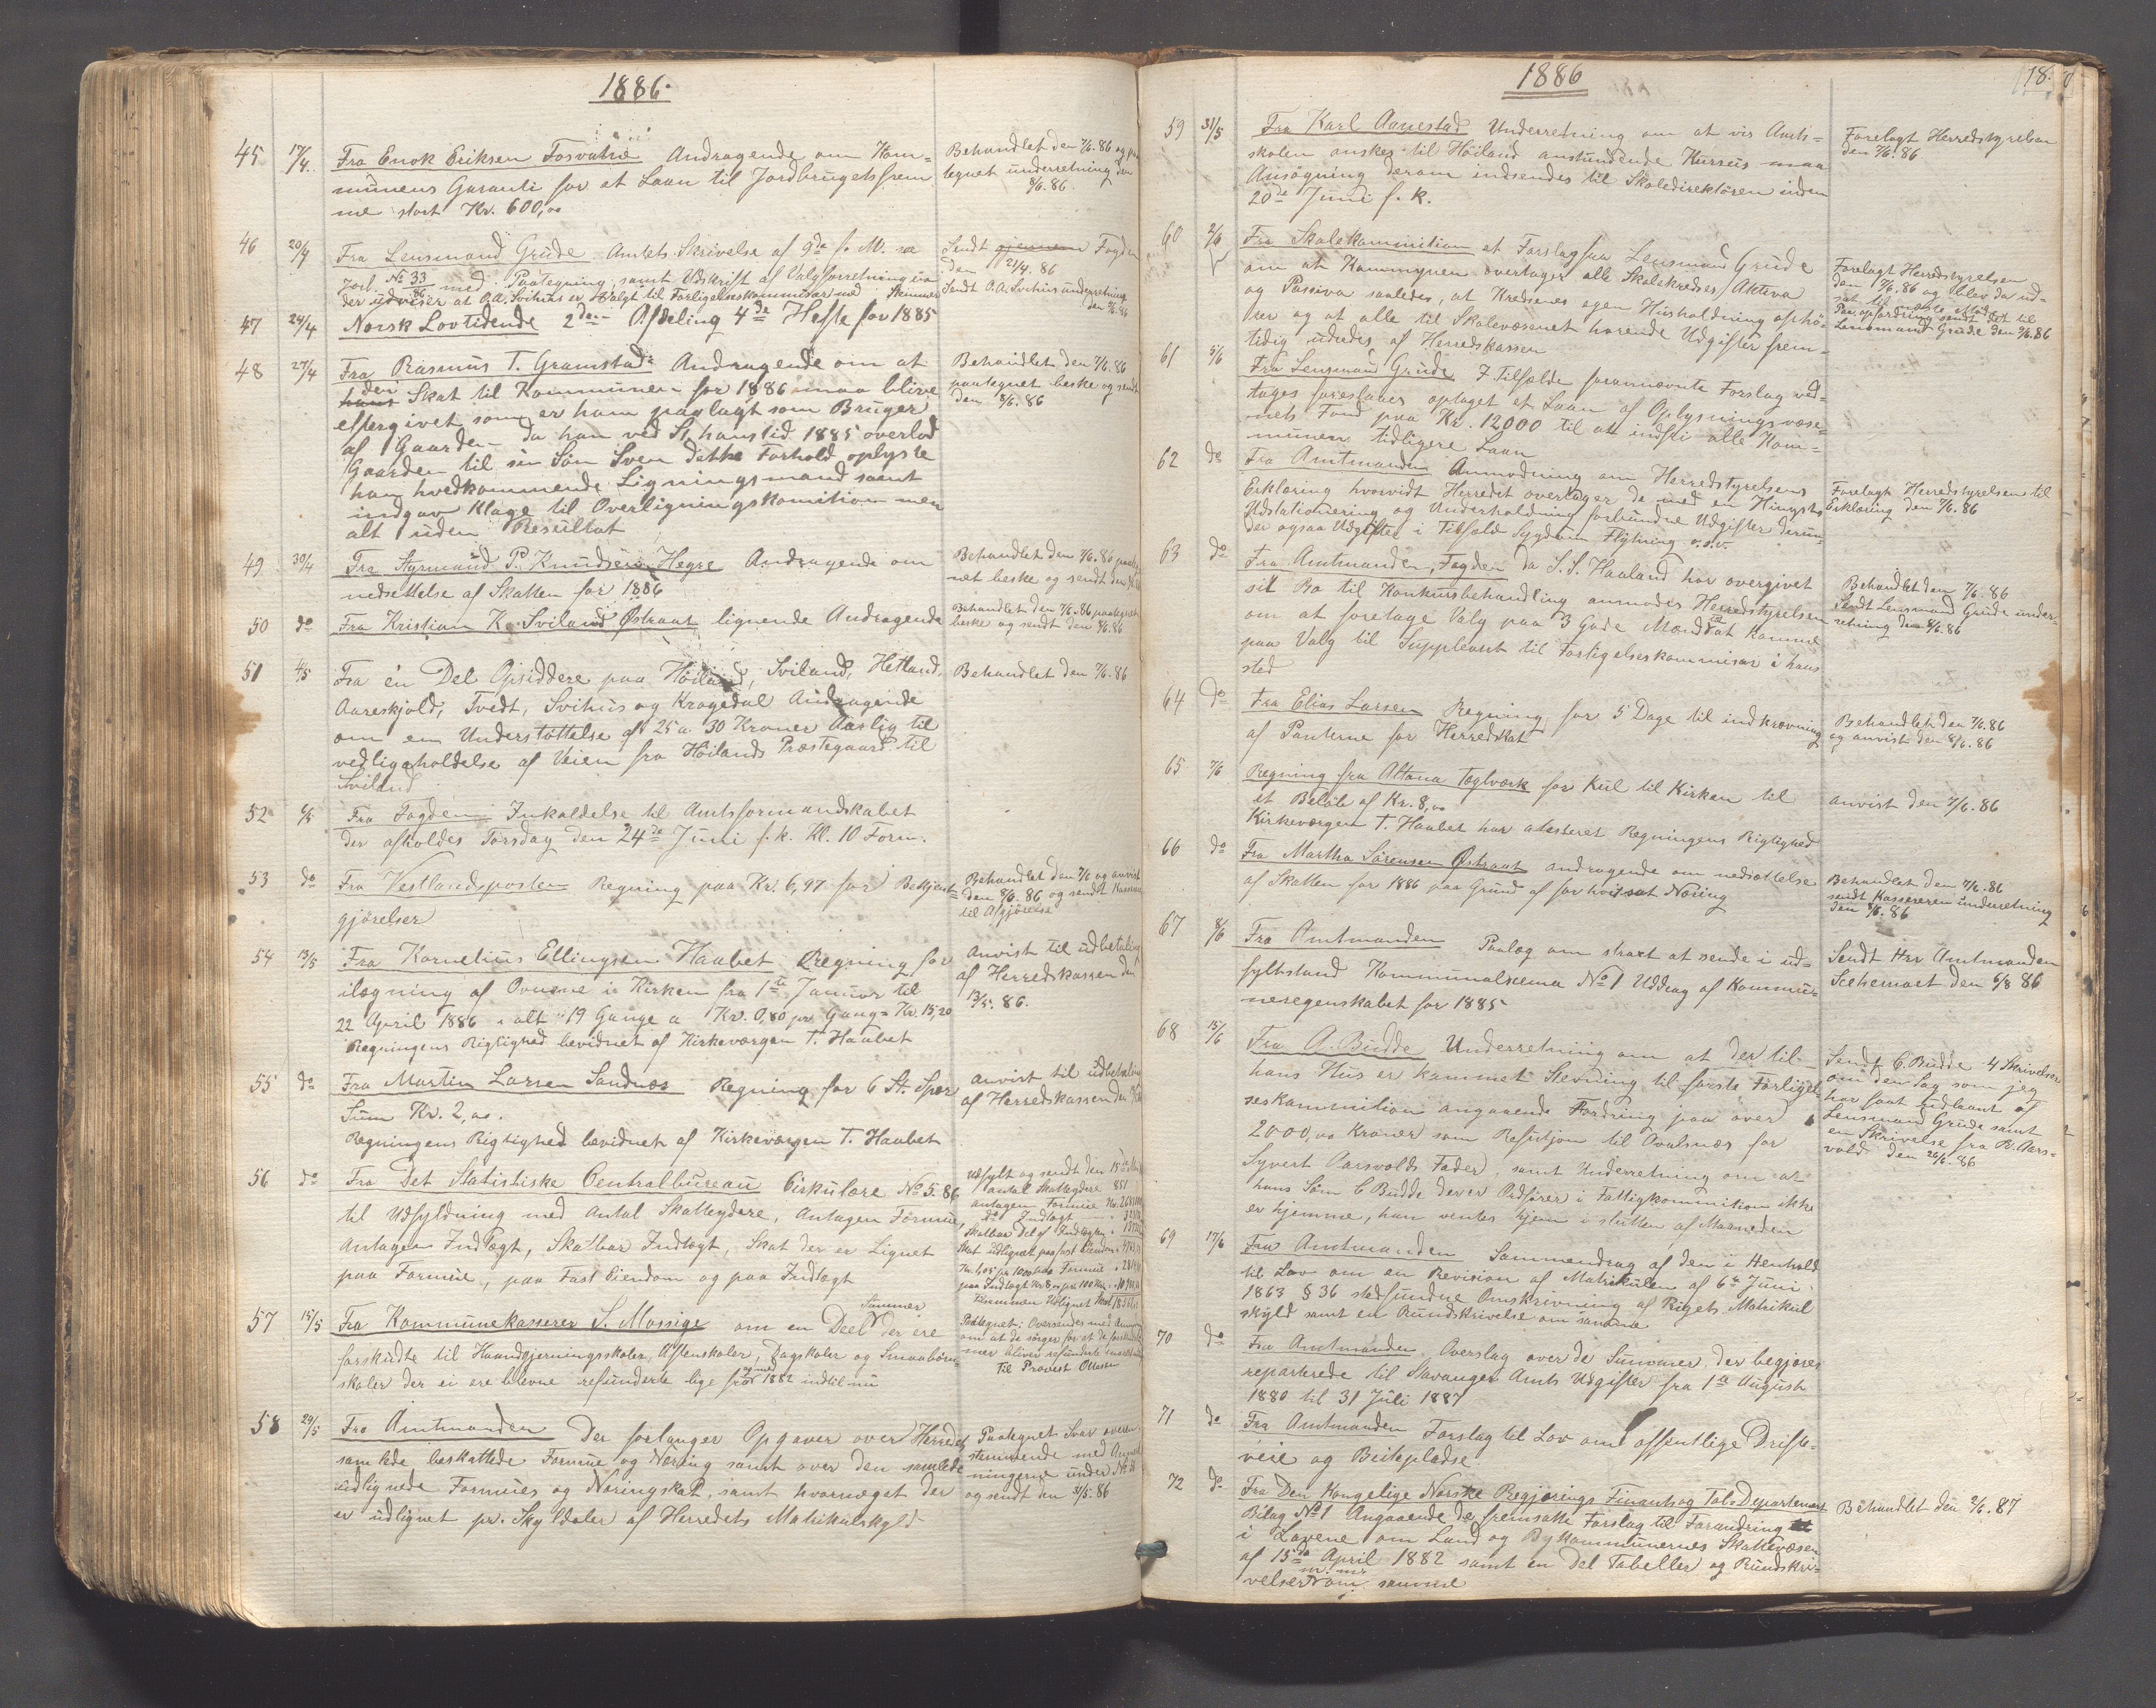 1886.
45 17/4. Fra Enok Eriksen Fosvatne Andragende om Kom=
munens Garanti for et Laan til Jordbrugets frem
me stort Kr. 600,00
Behandlet den 7/6. 86 og paa
tegnet underretning den
8/6. 86.
46 20/4 Fra Lensmand Grude Amtets Skrivelse af 9de f. M. se
Jorl. No 33/86 med Paategning, samt Udskrift af Valgforretning
der udviser at O.A. Svihus er valgt til Forligelseskommisær ved Skinner
Sendt gjennem Fogden
den 21/4. 86
Sendt O.A. Svihus underretning
den 8/6. 86
47 24/4 Norsk Lovtidende 2den Afdeling 4de Hefte for 1885
48 27/4 Fra Rasmus T. Gramstad: Andragende om at
hans den Skat til Kommunen for 1886 maa blive
eftergivet som er ham paalagt som Bruger
af Gaarden da han ved St hanstid 1885 overlod
Gaarden til sin Søn Sven dette Forhold oplyste
han hvedkommende Ligningsmand samt
indgav Klage til Overligningskomition men
alt uden Resultat
Behandlet den 7/6. 86
paategnet beske og sendt
den 8/6. 86
49 30/4 Fra Styrmand P. Knudsen Hegre Andragende om
nedsettelse af Skatten for 1886
Behandlet den 7/6. 86 paateg
net beske og sendt den 8/6. 86
50 do Fra Kristian K. Sviland Østraat lignende Andragende
Behandlet den 7/6. 86 paategnet
beske og sendt den 8/6. 86
51 4/5 Fra en Del Opsiddere paa Høiland, Sviland, Hetland,
Aareskjold, Tvedt, Svihus og Kragedal Andragende
om en Understøttelse af 25 a 30 Kroner Aarlig til
vedligeholdelse af Veien fra Høilands Præstegaard til
Sviland
Behandlet den 7/6. 86
52 6/5 Fra Fogden Inkaldelse til Amtsformandskabet
der afholdes Torsdag den 24de Juni f. k. Kl. 10 Form.
53 do Fra Vestlandsposten Regning paa Kr. 6,97 for Bekjent=
gjörelser
Behandlet den 7/6 og anvist
den 8/6. 86 og sendt Kasserer
til Afgjörelse
54 13/5 Fra Kornelius Ellingsen Haabet Regning for
ilægning af Ovnene i Kirken fra 1ste Januar til
22 April 1886 i alt 19 Gange a Kr. 0,80 pr Gang = Kr. 15,20
Regningens Rigtighed bevidnet af Kirkeværgen T. Haabet
Anvist til udbetaling
af Herredskassen den
13/5. 86.
55 do Fra Martin Larsen Sandnæs Regning for 6 St. Spær
Sum Kr. 2,00.
Regningens Rigtighed bevidnet af Kirkeværgen T. Haabet
anvist til udbetaling
af Herredskassen den
56 do Fra Det Statistiske Centralbureau Cirkulære No 5. 86
til Udfyldning med Antal Skatteydere, Antagen Formue,
Antagen Indtægt, Skatbar Indtægt, Skat der er Lignet
paa Formue, paa Fast Eiendom og paa Indtægt
Udfylt og sendt den 15de
antal Skatteydere 851
antagen Formue Kr.
do Indtægt
Skatbar Del af Indtægten
Skat udlignet paa fast Eiendom
Kr. 1,05 pr 1000 Kr Formue
paa Indtægt Kr 8,00 pr 100 Kr
Tilsammen Udlignet Skat
57 15/5 Fra Kommunekasserer S. Mossige om en Deel Summer der ere
forskudte til Haandgjerningsskoler, Aftenskoler, Dagskoler og Smaabørn
skoler der ei ere blevne refunderte lige fra og med 1882 indtil nu
Paategnet; Oversendes med Anmodn
om at de sørger for at de forskudte
mer bliver refunderte snarest
Til Provest Olsen
58 29/5 Fra Amtmanden Der forlanger Opgaver over Herredets
samlede beskattede Formue og Næring samt over den samlede
udlignede Formues og Næringskat, samt hvormeget der
er udlignet pr. Skylddaler af Herredets Matrikulskyld
Paategnet Svar overen
stemmende med Anmærk
ningerne under No
og sendt den 31/5. 86
1886
18.
59 31/5 Fra Karl Aanestad Underretning om at vis Amts=
skolen ønskes til Høiland anstundende Kursus maa
Ansøgning derom indsendes til Skoledirektören inden
20de Juni f. k.
Forelagt Herredstyrelsen
den 7/6. 86
60 2/6 Fra Skolekommition et Forslag fra Lensmand Grude
om at Kommunen overtager alle Skolekredser Aktiva
og Passiva saaledes, at Kredsenes egen Husholdning ophö=
rer og at alle til Skolevæsenet hørende Udgifter frem=
tidig udredes af Herredskassen
Forelagt Herredstyrelsen
den 7/6. 86 og blev da ud=
sat til næste Møde
Paa opfordring sendt det til
Lensmand Grude den 9/6. 86
61 5/6 Fra Lensmand Grude I Tilfælde foranævnte Forslag ved=
tages foreslaaes optaget et Laan af Oplysningsvæse=
nets Fond paa Kr. 12000 til at indfri alle Kom=
munens tidligere Laan
62 do Fra Amtmanden Anmodning om Herredstyrelsens
Erklæring hvorvidt Herredet overtager de med en Hingsts
Udstationering og Underholdning forbundne Udgifter derun=
der ogsaa Udgifter i Tilfæld Sygdom Flytning o.s.v.
Forelagt Herredstyrelsen til
Erklæring den 7/6. 86
63 do Fra Amtmanden, Fogden da S. S. Haaland har overgivet
sit Bo til Konkursbehandling anmodes Herredstyrelsen
om at foretage Valg paa 3 Gode Mænd at komme
paa Valg til Suppleant til Forligelseskommisær i hans
sted
Behandlet den 7/6. 86
Sendt Lensmand Grude under=
retning den 8/6. 86
64 do Fra Elias Larsen Regning for 5 Dage til indkrævning
af Panterne for Herredskat
Behandlet den 7/6. 86
og anvist den 8/6. 86
65 7/6 Regning fra Altona Teglværk for Kul til Kirken til
et Beløb af Kr. 8,00
Kirkeværgen T. Haabet har atesteret Regningens Rigtighed
anvist den 7/6. 86
66 do Fra Martha Sørensen Østraat andragende om nedsættelse
af Skatten for 1886 paa Grund af for høit sat Næring
Behandlet den 7/6. 86
sendt Kassereren underretning
den 8/6. 86
67 8/6 Fra Amtmanden Paalæg om straxt at sende i ud=
fyldtstand Kommunalskema No 1 Uddrag af Kommu=
neregenskabet for 1885
Sendt Hr Amtmanden
Scehemaet den 6/8 86
68 15/6 Fra A. Budde Underretning om at der til
hans Hus er kommet Stevning til første Forligel=
seskommition angaaende Fordring paa over
2000,00 Kroner som Refusjon til Ovalsnæs for
Syvert Aarsvolds Fader, samt Underretning om at
hans Søn C Budde der er Ordfører i Fattigkommition ikke
er hjemme, han ventes hjem i slutten af Maaneden
Sendt C. Budde 4 Skrivelser
om den Sag som jeg
har faat udlaant af
Lensmand Grude samt
en Skrivelse fra B. Aars=
vold den 26/6. 86
69 17/6 Fra Amtmanden Sammendrag af den i Henhold
til Lov om en Revision af Matrikulen af 6te Juni
1863 § 36 stedfundne Omskrivning af Rigets Matrikul
skyld samt en Rundskrivelse om samme
70 do Fra Amtmanden Overslag over de Summer der begjæres
reparterede til Stavanger Amts Udgifter fra 1ste August
1880 til 31 Juli 1887
71 do Fra Amtmanden Forslag til Lov om offentlige Drifte=
veie og Beiteplædse
72 do Fra Den Kongelige Norske Regjerings Finants og Told Departement
Bilag No 1 Angaaende de fremsatte Forslag til Forandring
i Lovene om Land og Bykommunernes Skattevæsen
af 15de April 1882 samt en del Tabeller og Rundskri=
velser m. m. om samme
Behandlet den 2/6. 87